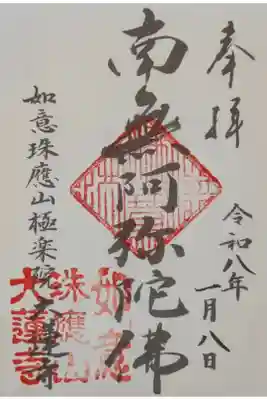 奉拝
令和八年
一月八日
南無阿弥陀佛
如意珠應山極楽院大蓮寺
如意
珠應山
大蓮寺